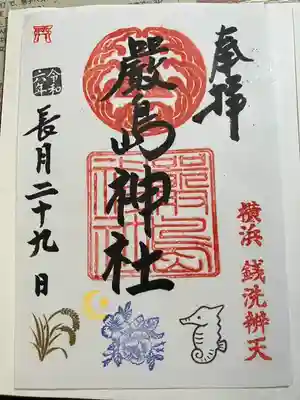 奉拝
横浜 銭洗辨天
嚴島神社
嚴島神社
令和六年
長月二十九日